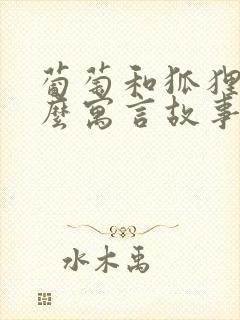 葡萄和狐狸
麼寓言故事
水木禹